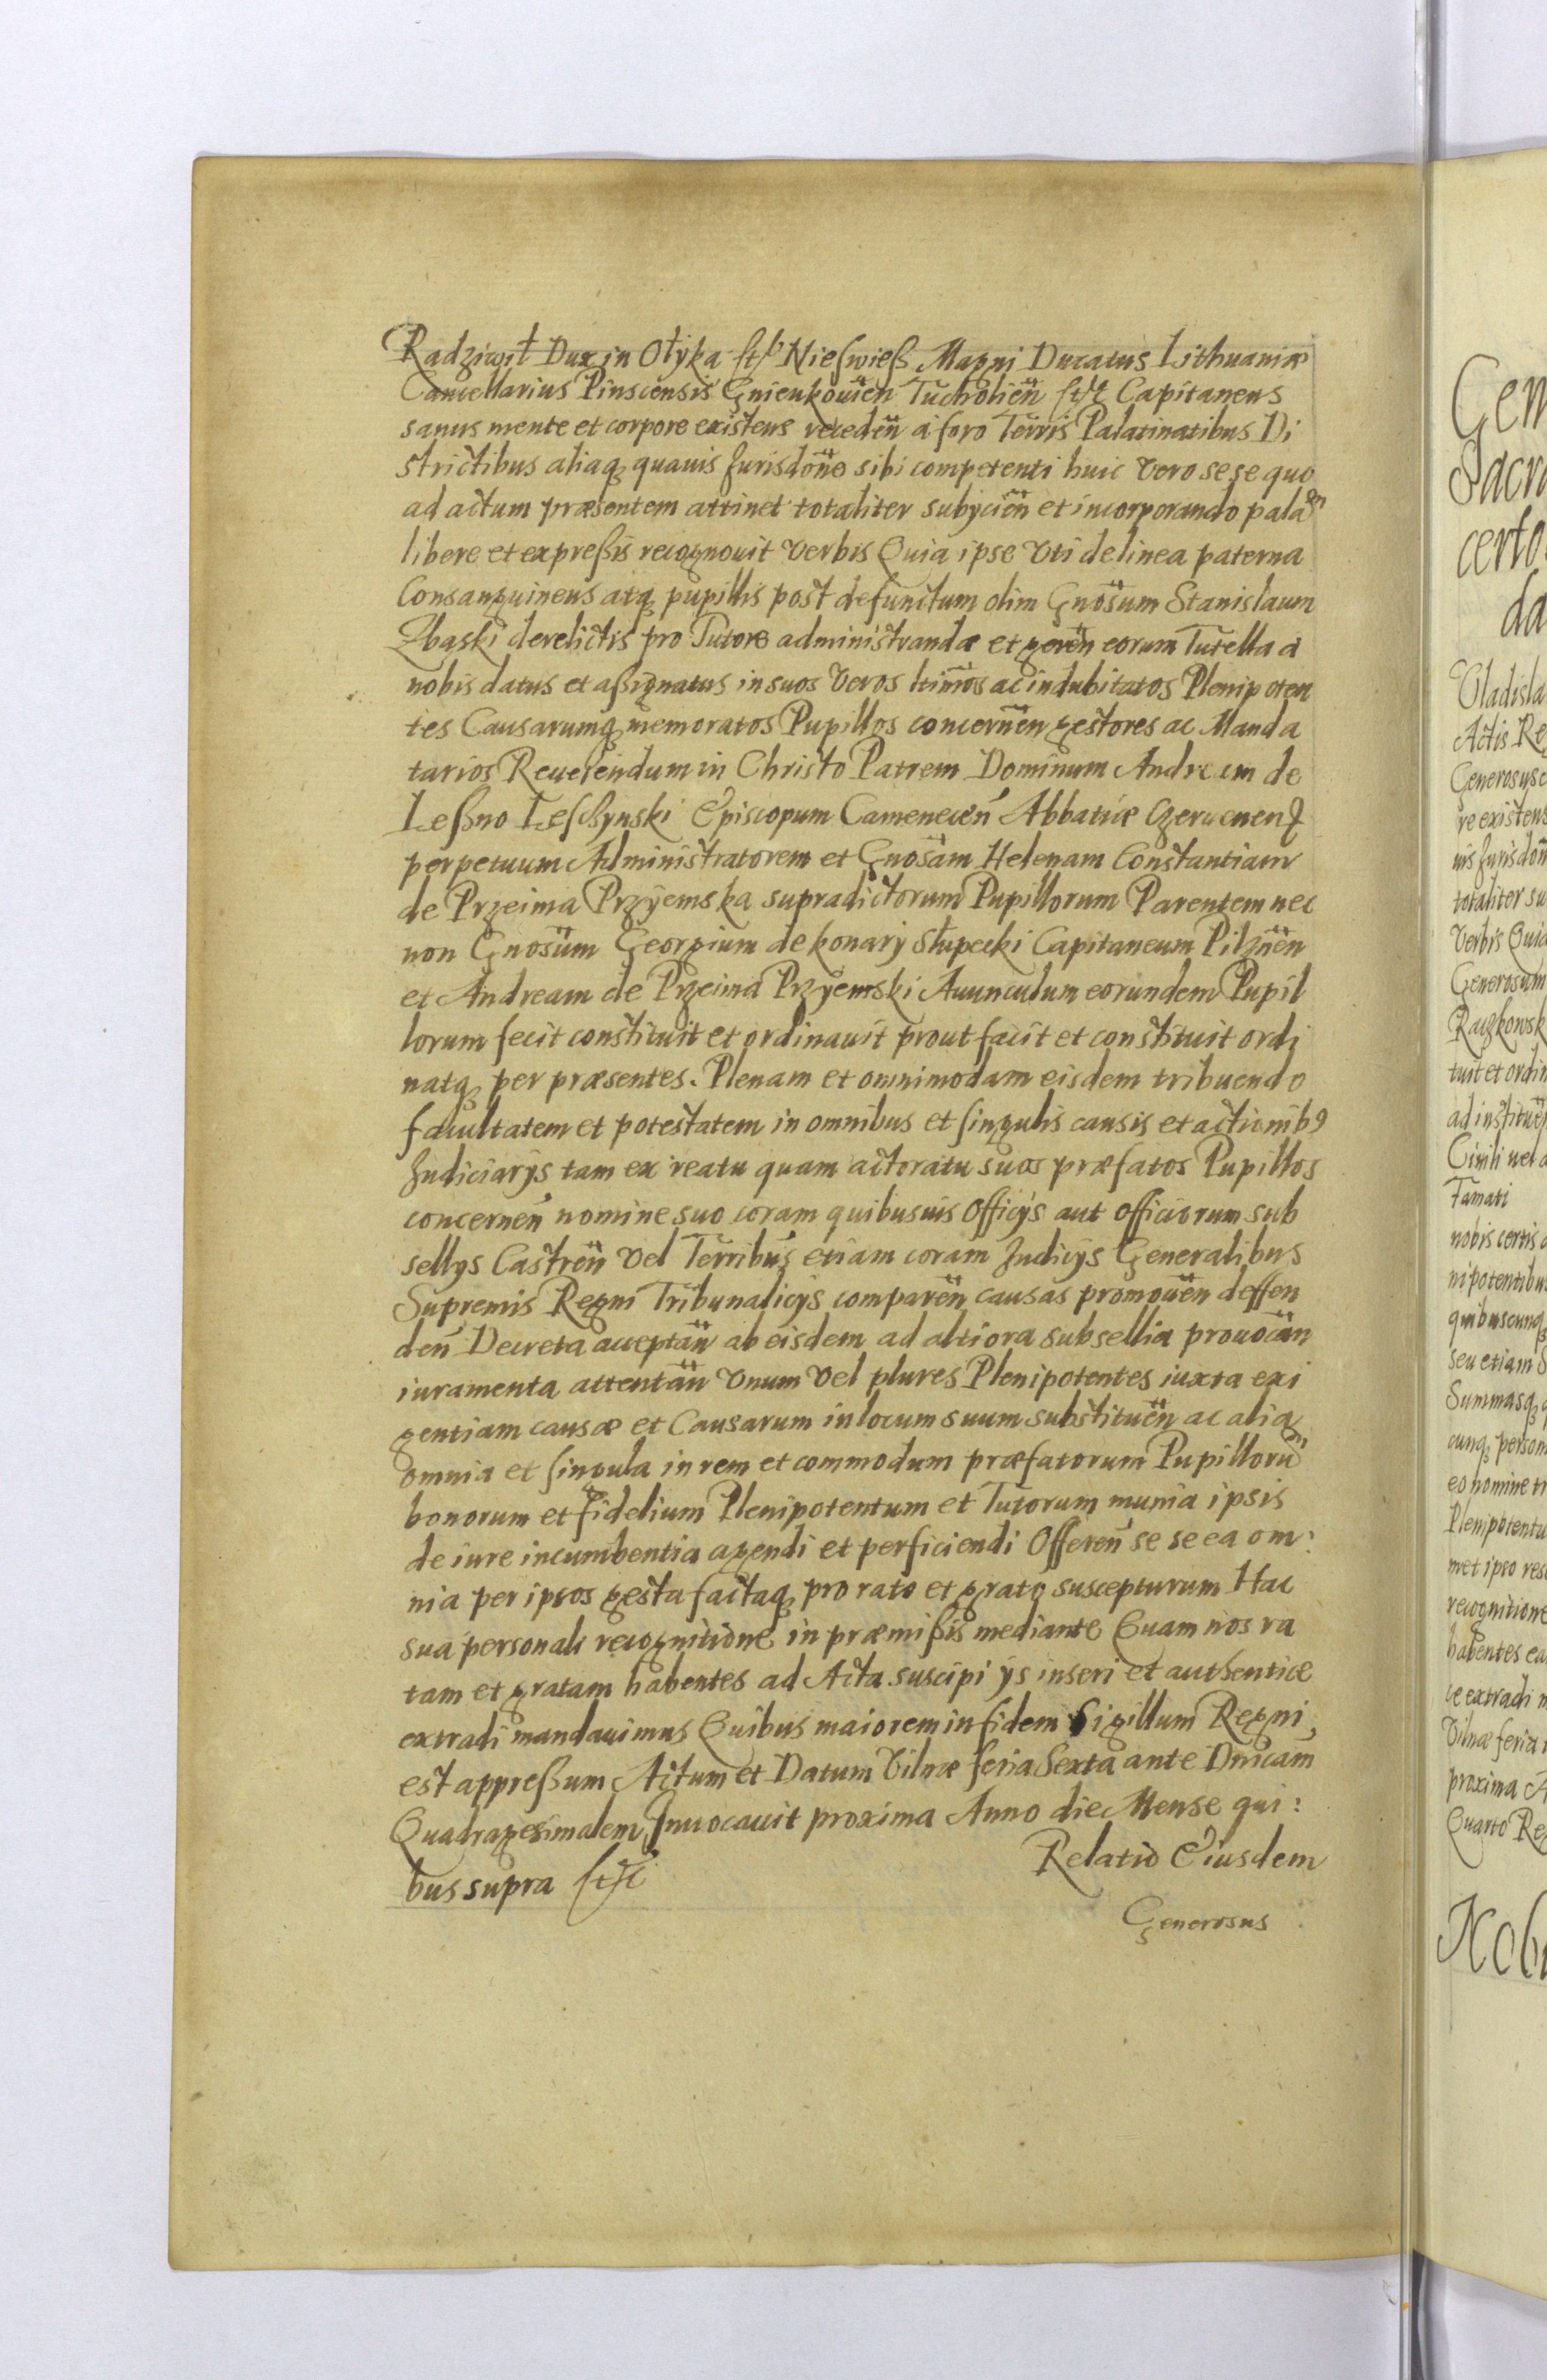 Radziwił Dux in Ołyka et Nieswieß Magni Ducatus Lithuaniæ
Cancellarius Pinscensis Gnieukouień Tucholień etc Capitaneus
sanus mente et corpore existens recedeñ a foro Terris Palatinatibus Di
strictibus aliaq quauis Jurisdone sibi competenti huic vero sese quo
ad actum præsentem attinet totaliter subijcień et incorporando palam
libere et expreßis recognouit verbis Quia ipse Vti de linea paterna
Consanguineus atq pupillis post defunctum olim Gnosum Stanislaum
Zbaski derelictis pro Tutore administrandæ et geren eorum Tutella a
nobis datus et aßignatus in suos Veros ltimos ac indubitatos Plenipoten
tes Causarumq memoratos Pupillos concernen gestores ac Manda
tarios Reuerendum in Christo Patrem Dominum Andream de
Leßno Leschynski Episcopum Camenecen Abbatiæ Czerwenen
perpetuum Administratorem et Gnosam Helenam Constantiam
de Przeima Przyemska supradictorum Pupillorum Parentem nec
non Gnosum Georgium de konary Słupecki Capitaneum Pilznen
et Andream de Przeima Przyemski Auunculum eorundem Pupil
lorum fecit constituit et ordinauit prout facit et constituit ordi
natq per præsentes. Plenam et omnimodam eisdem tribuendo
facultatem et potestatem in omnibus et singulis causis et actionib9
Judiciarijs tam ex reatu quam actoratu suos præfatos Pupillos
concernen nomine suo coram quibusuis Officijs aut Officiorum sub
sellijs Castren vel Terribus etiam coram Judicijs Generalibus
Supremis Regni Tribunalicijs comparen causas promouen deffen
den Decreta acceptan ab eisdem ad altiora subsellia prouocan
iuramenta attentan Vnum Vel plures Plenipotentes iuxta exi
gentiam causæ et Causarum in locum suum substituen ac alia
omnia et singula in rem et commodum præfatorum Pupilloru
bonorum et fidelium Plenipotentum et Tutorum munia ipsis
de iure incumbentia agendi et perficiendi Offeren se se ea om:
nia per ipsos gesta factaq pro rato et grato suscepturum Hac
sua personali recognitione in præmißis mediante Quam nos ra
tam et gratam habentes ad Acta suscipi ijs inseri et authentice
extradi mandauimus Quibus maiorem in fidem Sigillum Regni
est appreßum Actum et Datum Vilnæ feria Sexta ante Dnicam
Quadragesimalem Inuocauit proxima Anno die Mense qui:
bus supra etc
Relatio Eiusdem
Generosus
Gen
Sacr
certo
da
Vladisla
Actis Reg
Generosus c
re existens
uis Jurisdon
totaliter su
Verbis Quia
Generosum
Raczkowsk
tuit et ordin
ad instituen
Ciuili uel a
Famati
nobis certis
nipotentibus
quibuscunq
seu etiam S
Summasq
cunq person
eo nomine tr
Plenipotentu
met ipso res
recognitione
habentes ea
ce extradi m
Vilnæ feria
proxima A
Quarto Reg
Nobi